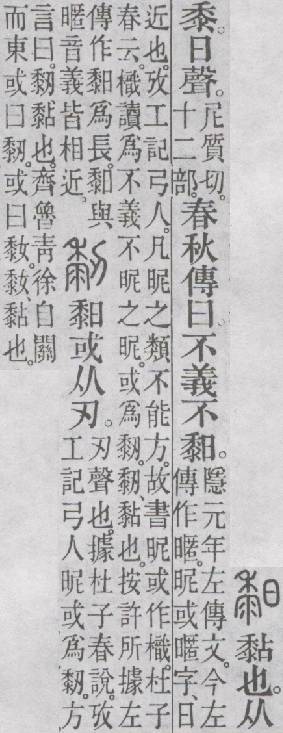 䵑黏也。从
黍。日聲。尼質切。十二部。春秋傳曰。不義不䵑。隱元年左傳文。今左傳作暱。昵或暱字。日
近也。攷工記弓人。凡昵之類不能方。故書昵或作樴。杜子
春云。樴讀爲不義不昵之昵。或爲䵒。䵒、黏也。按許所據左
傳作䵑爲長。䵑與暱音義皆相近。䵒䵑或从刃。刃聲也。據杜子春說。攷工記弓人昵或爲䵒。方
言曰。䵒、黏也。齊魯靑徐自關
而東或曰䵒。或曰黏也。